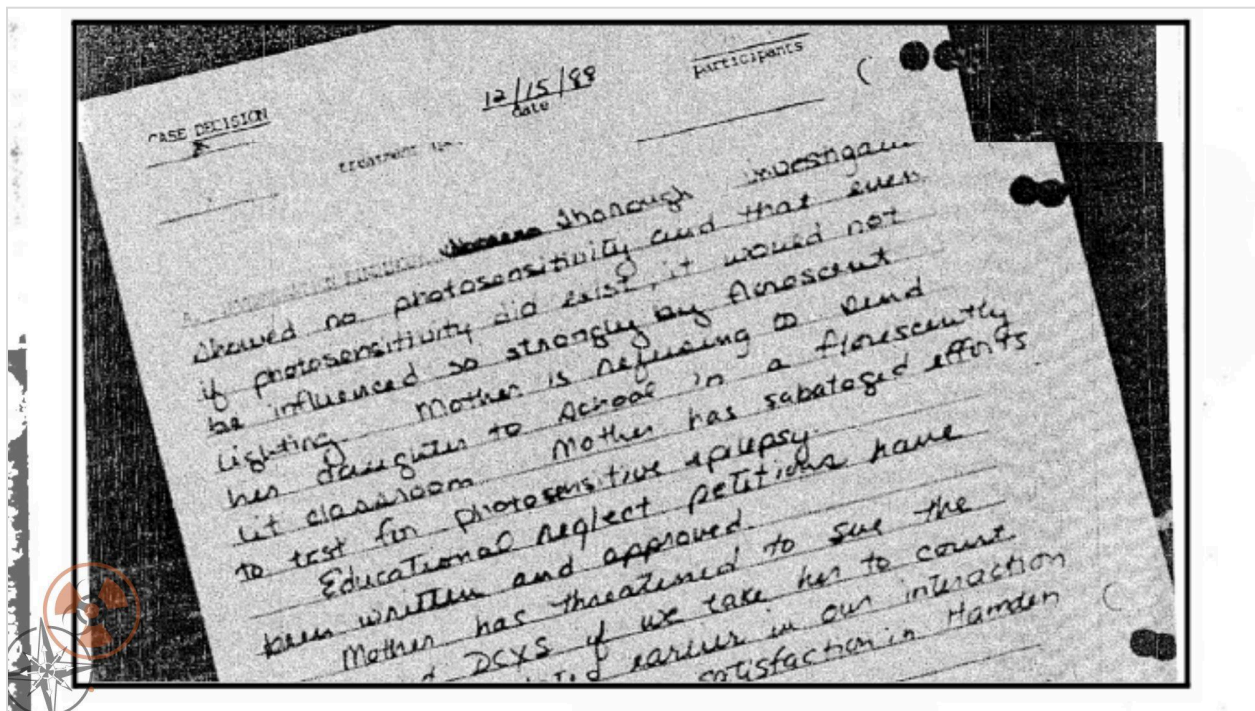 CASE DECISION
12/15/88
date
participants
treatment
thorough
showed no photosensitivity and that even
if photosensitivity did exist, it would not
be influenced so strongly by florescent
lighting. Mother is refusing to send
her daughter to school in a florescently
lit classroom. Mother has sabatoged efforts
to test for photosensitive epilepsy.
Educational neglect petitions have
been written and approved.
Mother has threatened to sue the
DCYS if we take her to court.
earlier in our interaction
satisfaction in Hamden